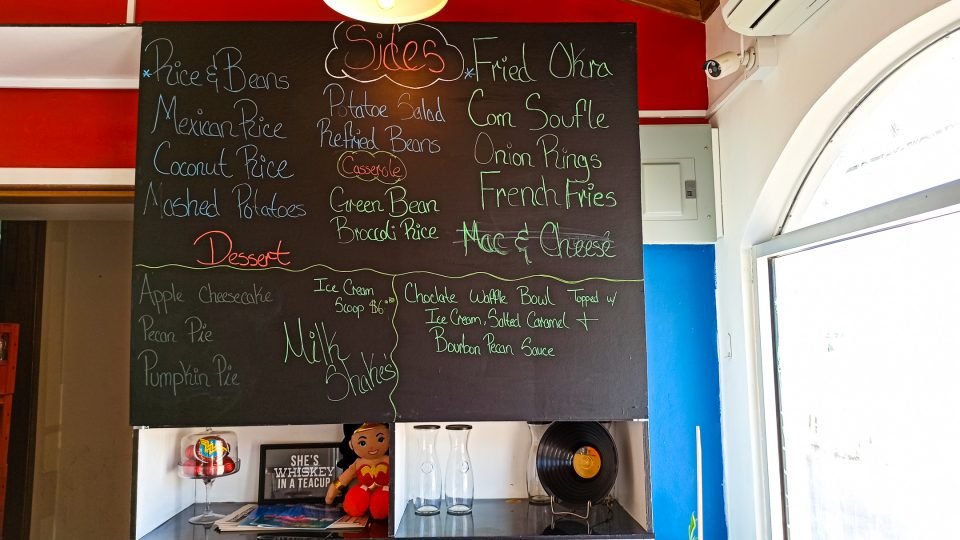 Sides
*Rice & Beans
Mexican Rice
Coconut Rice
Mashed Potatoes
Potatoe Salad
Refried Beans
Casserole
Green Bean
Broccoli Rice
*Fried Okra
Corn Soufle
Onion Rings
French Fries
Mac & Cheese
Dessert
Apple Cheesecake
Pecan Pie
Pumpkin Pie
Ice Cream
Scoop $6
Milk
Shakes
Choclate Waffle Bowl Topped w/
Ice Cream, Salted Caramel +
Bourbon Pecan Sauce
SHE'S
WHISKEY
IN A TEACUP